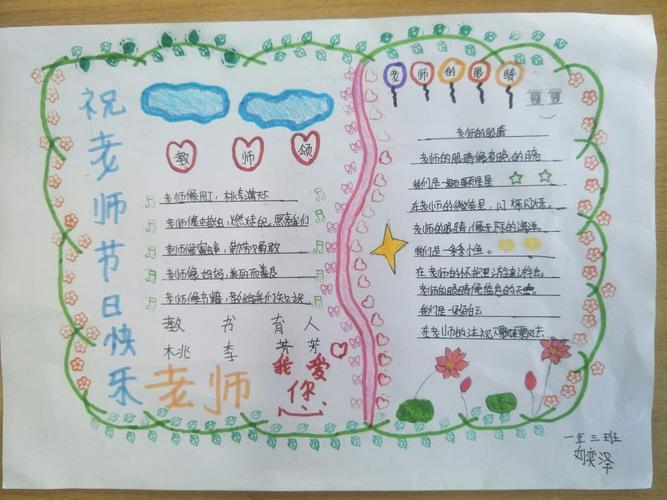 祝老师节日快乐
教师颂
老师像园丁，桃李满天下
老师像蜡烛，燃烧自己，照亮我们
老师像蜜蜂，勤劳又勇敢
老师像妈妈，美丽而善良
老师像书籍，教给我们知识
教 书 育 人
桃 李 芬 芳
老师
我爱
你
老师的眼睛
老师的眼睛
老师的眼睛像夜晚的
我们是一颗颗星星
在老师的
老师的眼睛，像无际的海洋。
我们是一条条小鱼。
在老师的怀抱里
老师的眼睛像蓝色的天空。
我们是一朵朵白云
在老师的注视
一年三班
刘奕泽